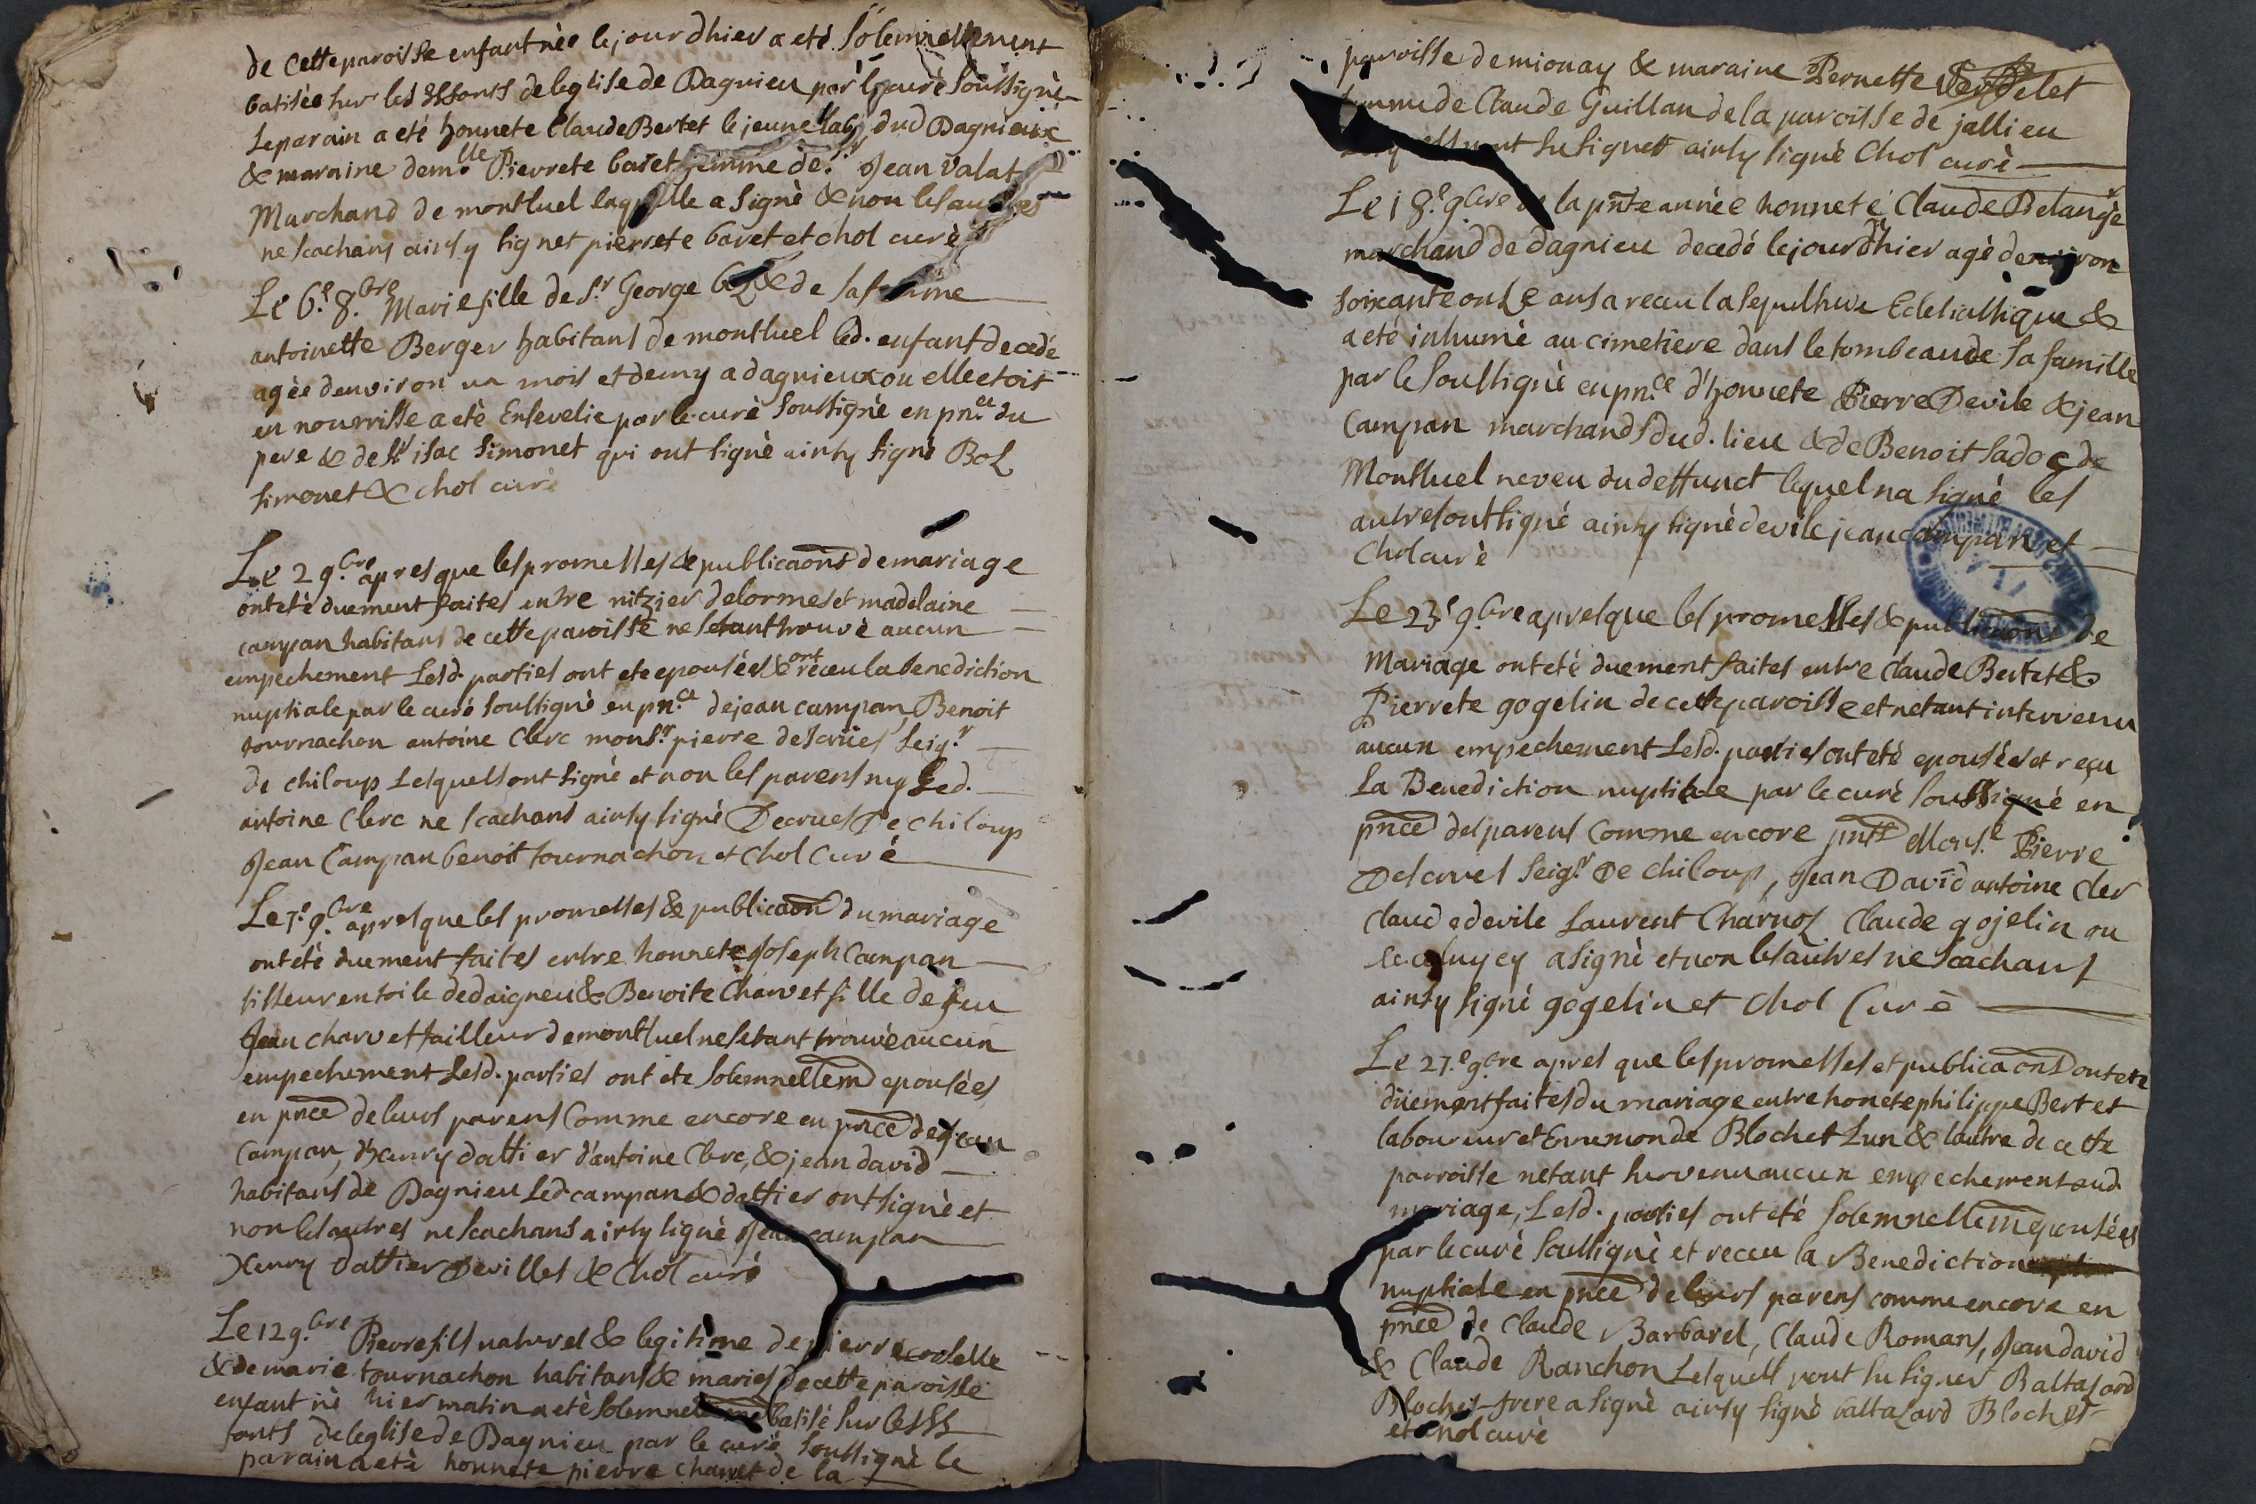 de cette paroisse enfant née le jour dhier a eté solemnellement
batisée sur les SSfonts de leglise de Dagnieu par le curè soussignè
le parain a eté honnete Claude Bertet le jeune lab. dud Dagnieux
& maraine dem.lle Pierrete baret femme de S.r Jean valat
Marchand de montluel laquelle a signè & non les autres
ne scachans ainsy signet pierrete baret et chol curè
Le 6.e 8.bre Marie fille de S.r George & de sa femme
antoinette Berger habitans de montluel led. enfant decedé
agèe denviron un mois et demy a dagnieux ou elle etoit
en nourrisse a etè Ensevelie par le curè soussignè en pn.ce du
pere & de S.r isac simonet qui ont signè ainsy signè Bol
simonet & chol curè
Le 2 9.bre apres que les promesses & publicaons de mariage
ont etè duement faites entre nitzier delormes et madelaine
campan habitans de cette paroisse ne setant trouvè aucun
empechement Lesd. parties ont ete epousées & ont receu la benediction
nuptiale par le curé soussignè en pn.ce de jean campan Benoit
tournachon antoine Clerc mons.r pierre descrües seig.r
de chiloup Lesquels ont signè et non les parens ny Led.
antoine Clerc ne scachans ainsy signè Decrues De chiloup
Jean Campan benoit tournachon et Chol Curé
Le 7.e 9.bre apres que les promesses & publicaons du mariage
ont etè duement faites entre honnete Joseph Campan
tisseur en toile de daigneu & Benoite Charvet fille de feu
Jean charvet tailleur de montluel ne setant trouvè aucun
empechement Lesd. parties ont ete solemnellem epousées
en pnce de leurs parens Comme encore en pnce de Jean
Campan, d'henry dattier d'antoine Clerc, & jean david
habitans de Dagnieu Led campan & dattier ont signè et
non les autres ne scachans ainsy signè Jean campan
Henry dattier Devilles & Chol curè
Le 12 9.bre Pierre fils naturel & legitime de pierre
& de marie tournachon habitans & mariés de cette paroisse
enfant nè hier matin a etè solemnellement batisè sur les SS
fonts de leglise de Dagnieu par le curè soussignè le
parain a etè honnete pierre charvet de la
paroisse de mionay & maraine Pernette
femme de Claude Guillan de la paroisse de jallieu
nont su signer ainsy signè Chol curè
Le 18.e 9.bre de la pnte année honnete Claude Belangé
marchand de dagnieu decedé le jour dhier agé denviron
soixante onze ans a receu la sepulture Eclesiastique &
a eté inhumè au cimetiere dans le tombeau de sa famille
par le soussignè en pn.ce d'honnete Pierre Devile & jean
Campan marchands dud. lieu & de Benoit sadoc de
Montluel neveu du deffunct lequel na signè les
autres ont signè ainsy signè devile jean campan et
Chol curè
Le 23.e 9.bre apres que les promesses & publicaons de
Mariage ont etè duement faites entre Claude Bertet &
Pierrete gogelin de cette paroisse et netant intervenu
aucun empechement Lesd. parties ont etè epousées et reçu
La Benediction nuptiale par le curè soussignè en
pnce des parens Comme encore pnts Mons.r Pierre
Descrues seig.r De chiloup, Jean David antoine cler
claude devile Laurent Charnoz Claude gojelin ou
celuycy a signè et non les autres ne scachans
ainsy signè gogelin et Chol Curè
Le 27.e 9.bre apres que les promesses et publicaons ont ete
düement faites du mariage entre honete philippe Bertet
laboureur et Ennemonde Blochet Lun & lautre de cette
parroisse netant survenu aucun empechement aud
mariage, Lesd. parties ont etè solemnellem epousées
par le curè soussignè et receu la Benediction
nuptiale en pnce de leurs parens comme encore en
pnce de Claude Barbarel, Claude Romans, Jean david
& Claude Ranchon Lesquels nont su signer Baltasard
Blochet frere a signè ainsy signè baltasard Blochet
et chol curè